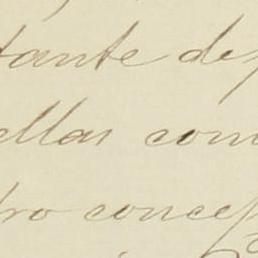 tante de
ellas com
tro concep